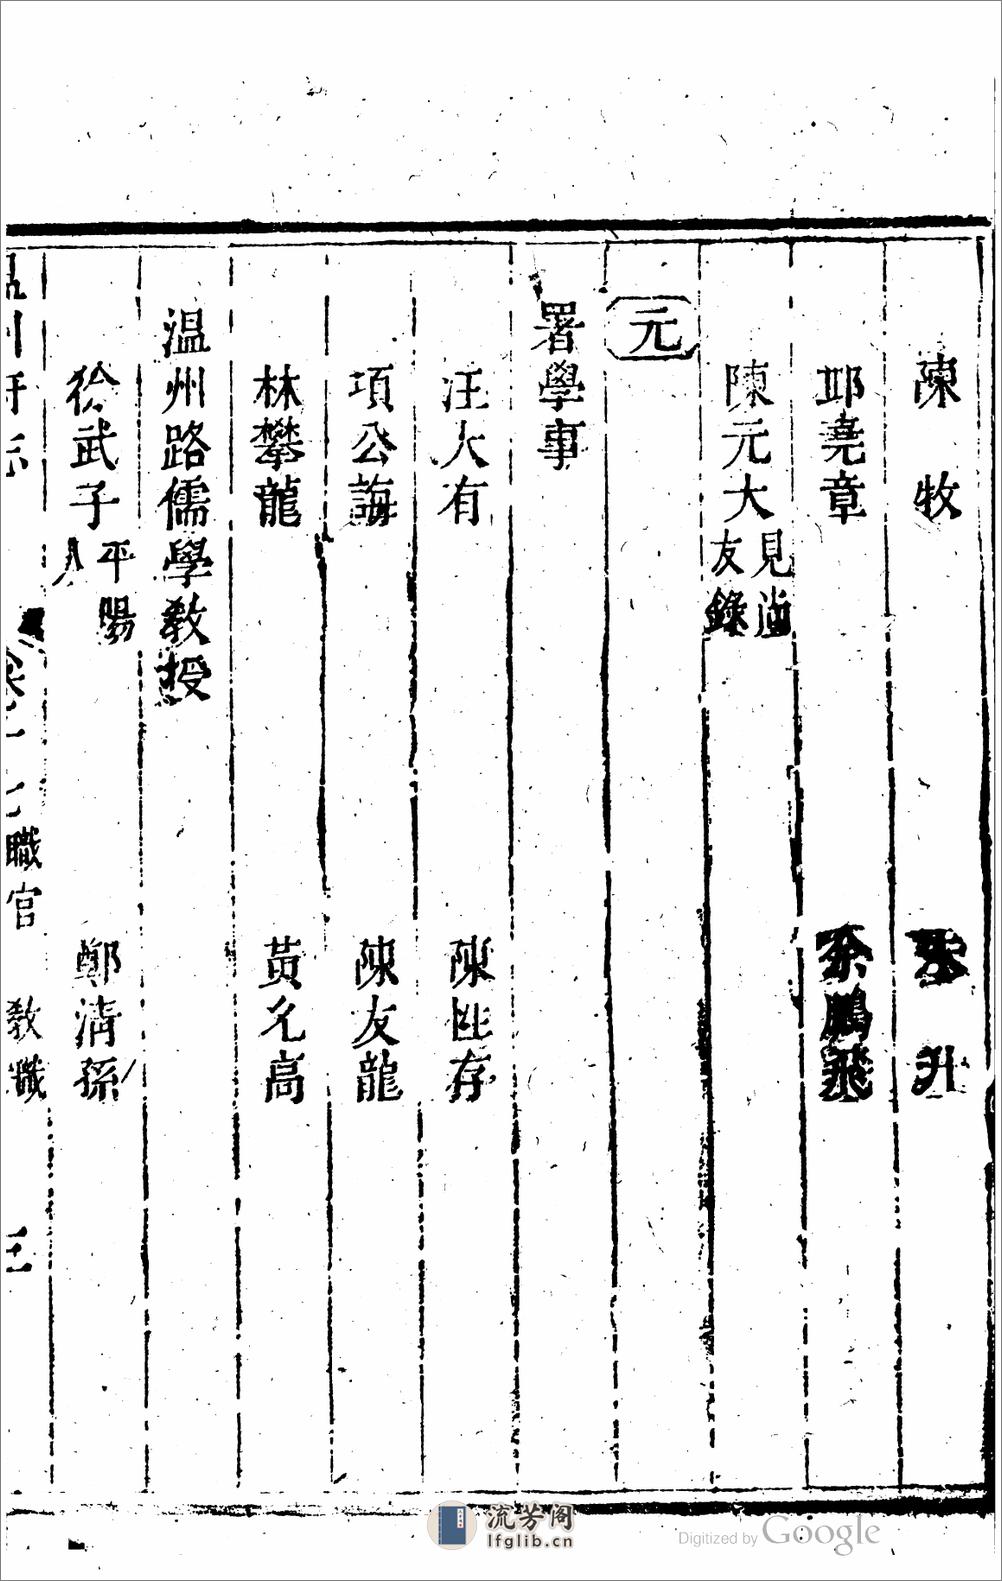 陳牧　朱升
邶堯章　余鵬飛
陳元大見尚友錄
元
署學事
汪大有　陳匪存
項公誨　陳友龍
林攀龍　黃允高
温州路儒學教授
徐武子平陽人　鄭清孫
温州府志　卷十七　職官　教職　三
流芳阁
lfglib.cn
Digitized by Google